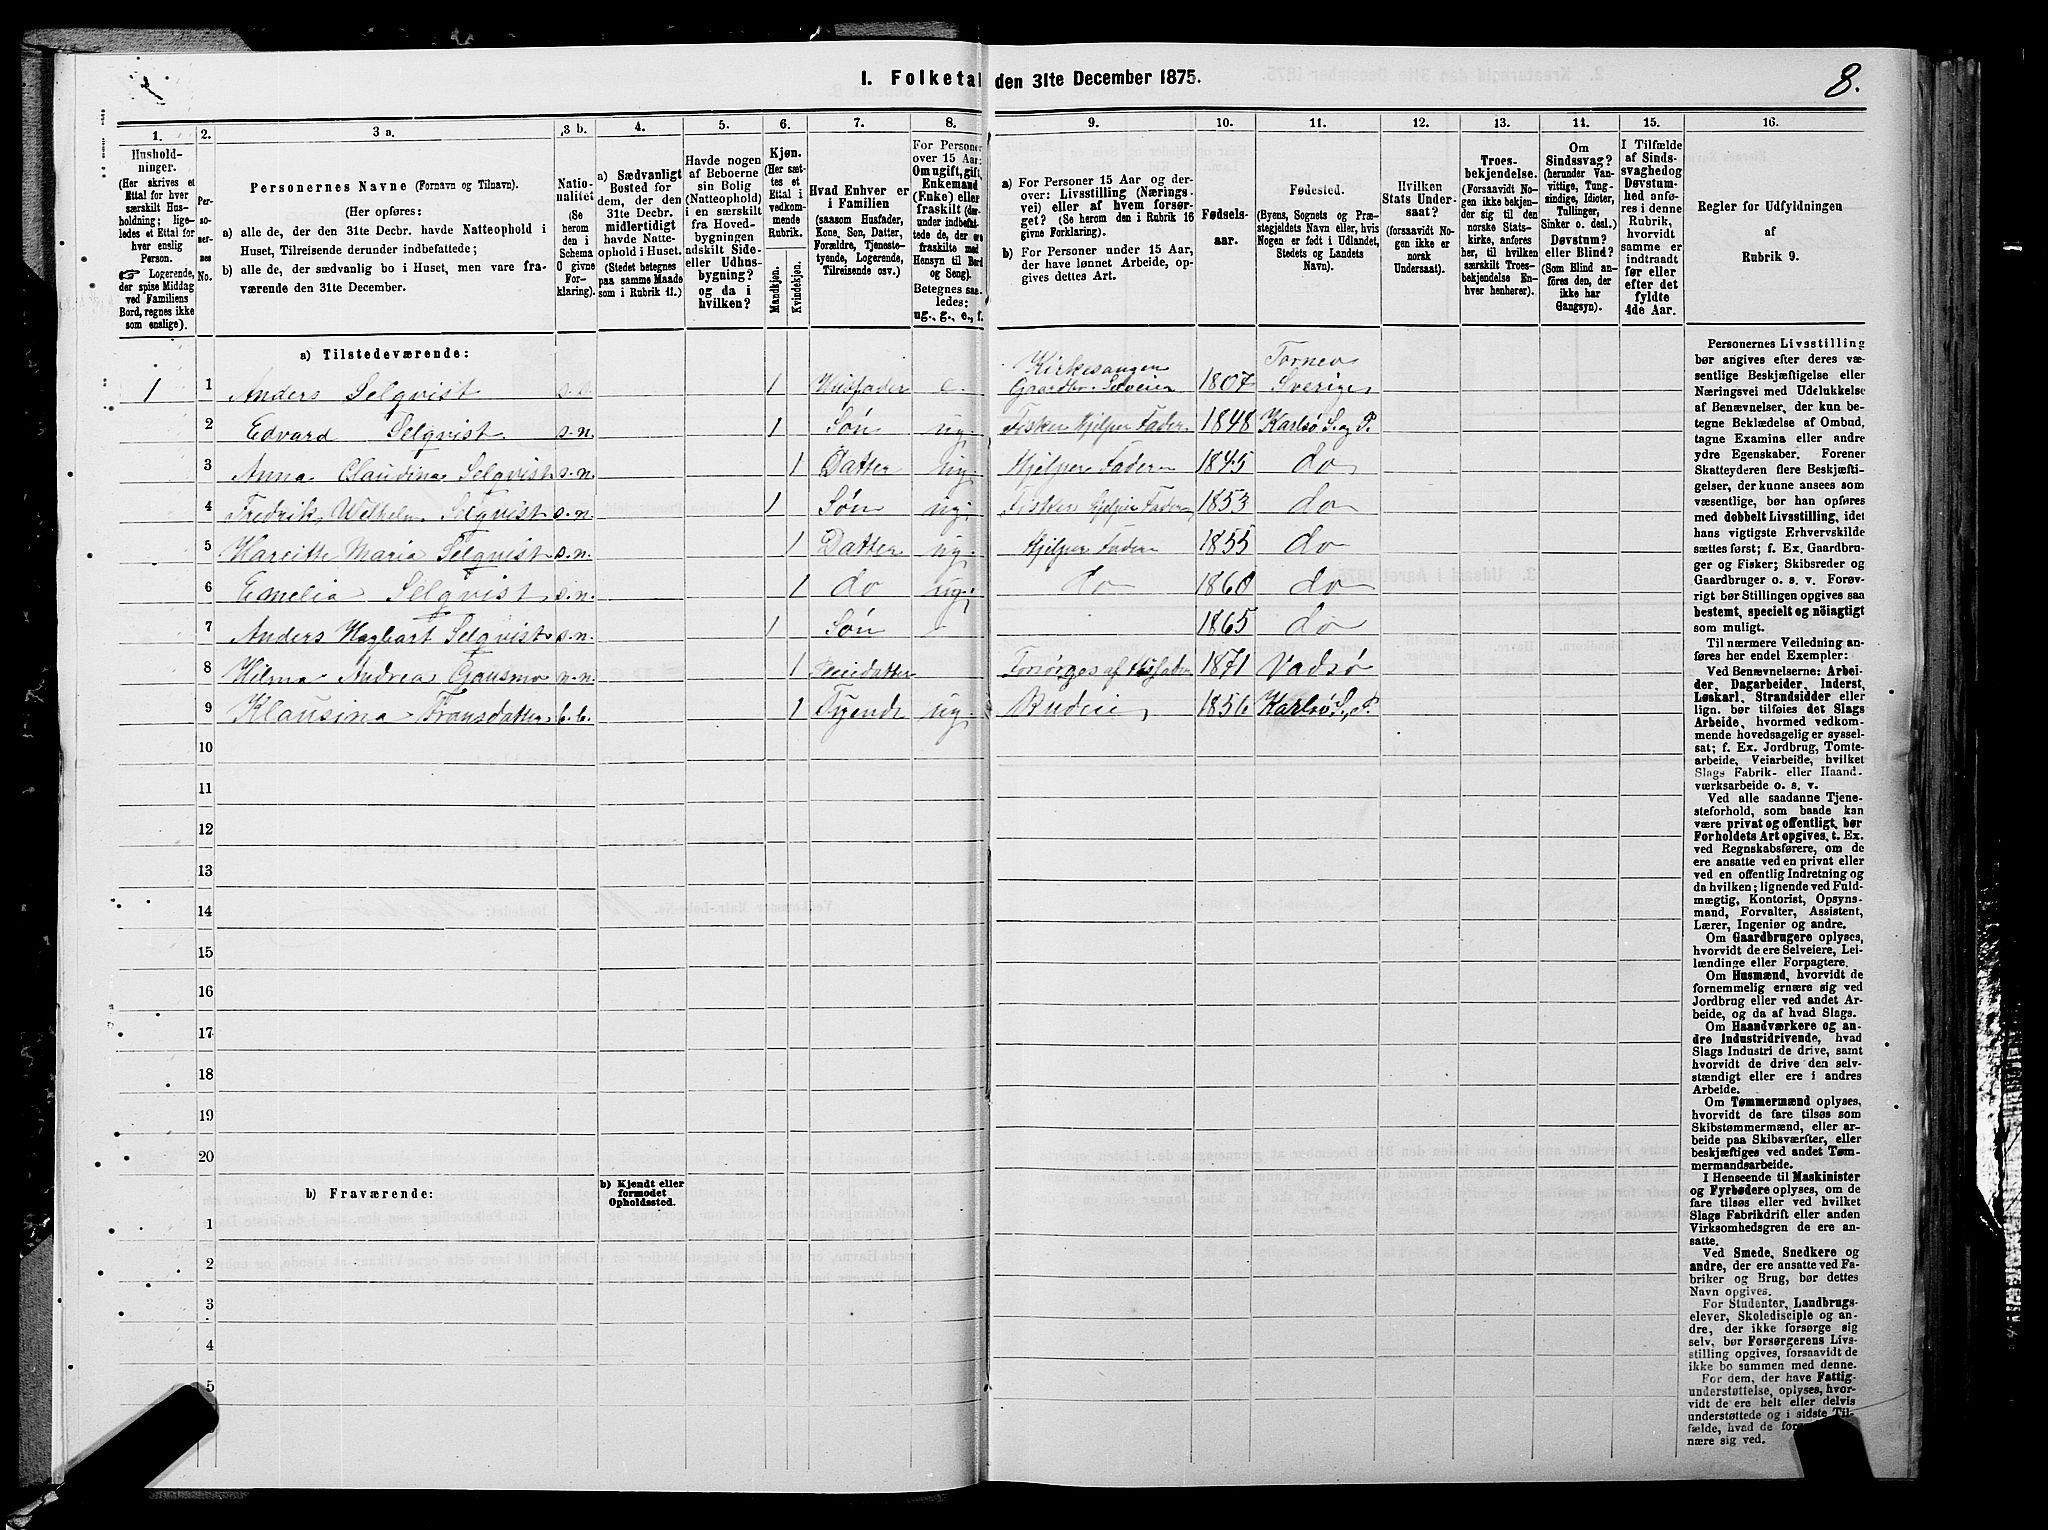 I. Folketal den 31te December 1875.
8.
1. 2. 3 a. 3 b. 4. 5. 6. 7. 8. 9. 10. 11. 12. 13. 14. 15. 16.
Hushold-
ninger.
(Her skrives et
Ettal for hver
særskilt Hus-
holdning; lige-
ledes et Ettal for
hver enslig
Person.
☞ Logerende,
der spise Middag
ved Familiens
Bord, regnes ikke
som enslige).
Per-
so-
ner-
nes
No.
Personernes Navne (Fornavn og Tilnavn).
(Her opføres:
a) alle de, der den 31te Decbr. havde Natteophold i
Huset, Tilreisende derunder indbefattede;
b) alle de, der sædvanlig bo i Huset, men vare fra-
værende den 31te December.
Natio-
nalitet
(Se
herom
den i
Schema
O givne
For-
klaring).
a) Sædvanligt
Bosted for
dem, der den
31te Decbr.
midlertidigt
havde Natte-
ophold i Huset.
(Stedet betegnes
paa samme Maade
som i Rubrik 11.)
Havde nogen
af Beboerne
sin Bolig
(Natteophold)
i en særskilt
fra Hoved-
bygningen
adskilt Side-
eller Udhus-
bygning?
og da i
hvilken?
Kjøn.
(Her sæt-
tes et
Ettal i
vedkom-
mende
Rubrik.
Mandkjøn.
Kvindekjøn.
Hvad Enhver er
i Familien
(saasom Husfader,
Kone, Søn, Datter,
Forældre, Tjeneste-
tyende, Logerende,
Tilreisende osv.)
For Personer
over 15 Aar:
Om ugift, gift,
Enkemand
(Enke) eller
fraskilt (der-
under indbefat-
tede de, der ere
fraskilte med
Hensyn til Bord
og Seng).
Betegnes saa-
ledes:
ug., g., e., f.
a) For Personer 15 Aar og der-
over: Livsstilling (Nærings-
vei) eller af hvem forsør-
get? (Se herom den i Rubrik 16
givne Forklaring).
b) For Personer under 15 Aar,
der have lønnet Arbeide, op-
gives dettes Art.
Fødsels-
aar.
Fødested.
(Byens, Sognets og Præ-
stegjeldets Navn eller, hvis
Nogen er født i Udlandet,
Stedets og Landets
Navn).
Hvilken
Stats Under-
saat?
(forsaavidt No-
gen ikke er
norsk
Undersaat).
Troes-
bekjendelse.
(Forsaavidt No-
gen ikke bekjen-
der sig til den
norske Stats-
kirke, anføres
her, til hvilken
særskilt Troes-
bekjendelse En-
hver henhører).
Om
Sindssvag?
(herunder Van-
vittige, Tung-
sindige, Idioter,
Tullinger,
Sinker o. desl.)
Døvstum?
eller Blind?
(Som Blind an-
føres den, der
ikke har
Gangsyn).
I Tilfælde
af Sinds-
svaghed og
Døvstum-
hed anfø-
res i denne
Rubrik,
hvorvidt
samme er
indtraadt
før eller
efter det
fyldte
4de Aar.
Regler for Udfyldningen
af
Rubrik 9.
a) Tilstedeværende:
Kirkesanger Torneo
1 1 Anders Selqvist s. s. 1 Husfader e. Gaardbr. Selveier 1807 Sverige
2 Edvard Selqvist s. n. 1 Søn ug. Fisker Hjelper Fader 1848 Karlsø S. og P.
3 Anna Claudina Selqvist s. n. 1 Datter ug. Hjelper Faderen 1845 do
4 Fredrik Welhelm Selqvist s. n. 1 Søn ug. Fisker Hjelper Fader 1853 do
5 Hareitte Maria Selqvist s. n. 1 Datter ug. Hjelper Fader 1855 do
6 Emelia Selqvist s. n. 1 do ug. do 1860 do
7 Anders Hagbart Selqvist s. n. 1 Søn 1865 do
8 Hilma Andrea n. n. 1 Pleiedatter Forsørges af Husfader 1871 Vadsø
9 Klausina Fransdatter b. b. 1 Tyende ug. Budeie 1856 Karlsø S., P.
10
11
12
13
14
15
16
17
18
19
20
b) Fraværende:
b) Kjendt eller
formodet
Opholdssted.
1
2
3
4
5
Personernes Livsstilling
bør angives efter deres væ-
sentlige Beskjæftigelse eller
Næringsvei med Udelukkelse
af Benævnelser, der kun be-
tegne Beklædelse af Ombud,
tagne Examina eller andre
ydre Egenskaber. Forener
Skatteyderen flere Beskjæfti-
gelser, der kunne ansees som
væsentlige, bør han opføres
med dobbelt Livsstilling, idet
hans vigtigste Erhvervskilde
sættes først; f. Ex. Gaardbru-
ger og Fisker; Skibsreder og
Gaardbruger o. s. v. Forøv-
rigt bør Stillingen opgives saa
bestemt, specielt og nöiagtigt
som muligt.
Til nærmere Veiledning an-
føres her endel Exempler:
Ved Benævnelserne: Arbei-
der, Dagarbeider, Inderst,
Løskarl, Strandsidder eller
lign. bør tilføies det Slags
Arbeide, hvormed vedkom-
mende hovedsagelig er syssel-
sat; f. Ex. Jordbrug, Tomte-
arbeide, Veiarbeide, hvilket
Slags Fabrik- eller Haand-
værksarbeide o. s. v.
Ved alle saadanne Tjene-
steforhold, som baade kan
være privat og offentligt, bør
Forholdets Art opgives, t. Ex.
ved Regnskabsførere, om de
ere ansatte ved en privat eller
ved en offentlig Indretning og
da hvilken; lignende ved Fuld-
mægtig, Kontorist, Opsyns-
mand, Forvalter, Assistent,
Lærer, Ingeniør og andre.
Om Gaardbrugere oplyses,
hvorvidt de ere Selveiere, Lei-
lændinge eller Forpagtere.
Om Husmænd, hvorvidt de
fornemmelig ernære sig ved
Jordbrug eller ved andet Ar-
beide, og da af hvad Slags.
Om Haandværkere og an-
dre Industridrivende, hvad
Slags Industri de drive, samt
hvorvidt de drive den selv-
stændigt eller ere i andres
Arbeide.
Om Tømmermænd oplyses,
hvorvidt de fare tilsøs som
Skibstømmermænd, eller ar-
beide paa Skibsværfter, eller
beskjæftiges ved andet Tøm-
mermandsarbeide.
I Henseende til Maskinister
og Fyrbødere oplyses, om de
fare tilsøs eller ved hvilket
Slags Fabrikdrift eller anden
Virksomhedsgren de ere an-
satte.
Ved Smede, Snedkere og
andre, der ere ansatte ved Fa-
briker og Brug, bør dettes
Navn opgives.
For Studenter, Landbrugs-
elever, Skoledisciple og an-
dre, der ikke forsørge sig
selv, bør Forsørgerens Livs-
stilling opgives, forsaavidt de
ikke bo sammen med denne.
For dem, der have Fattig-
understøttelse, oplyses, hvor-
vidt de ere helt eller delvis
understøttede og i sidste Til-
fælde, hvad de
nære sig ved.